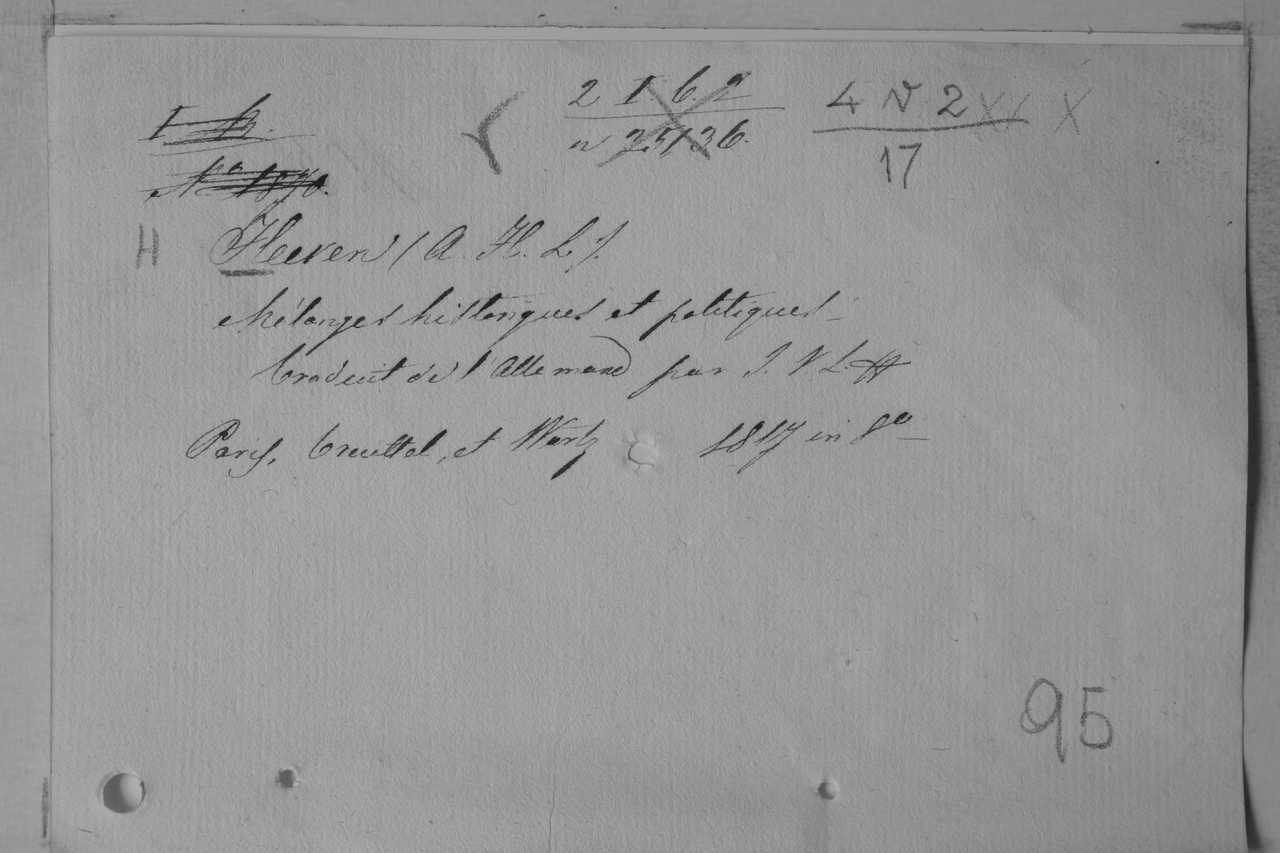 I B.
2 I. 6. 2
4 N 2
n 25136.
17
Nº 1870.
H
Heeren (A. H. L.).
Mélanges historiques et politiques
traduit de l'Allemand par J.
Paris, Treuttel, et Wurtz 1817 in 8º
95